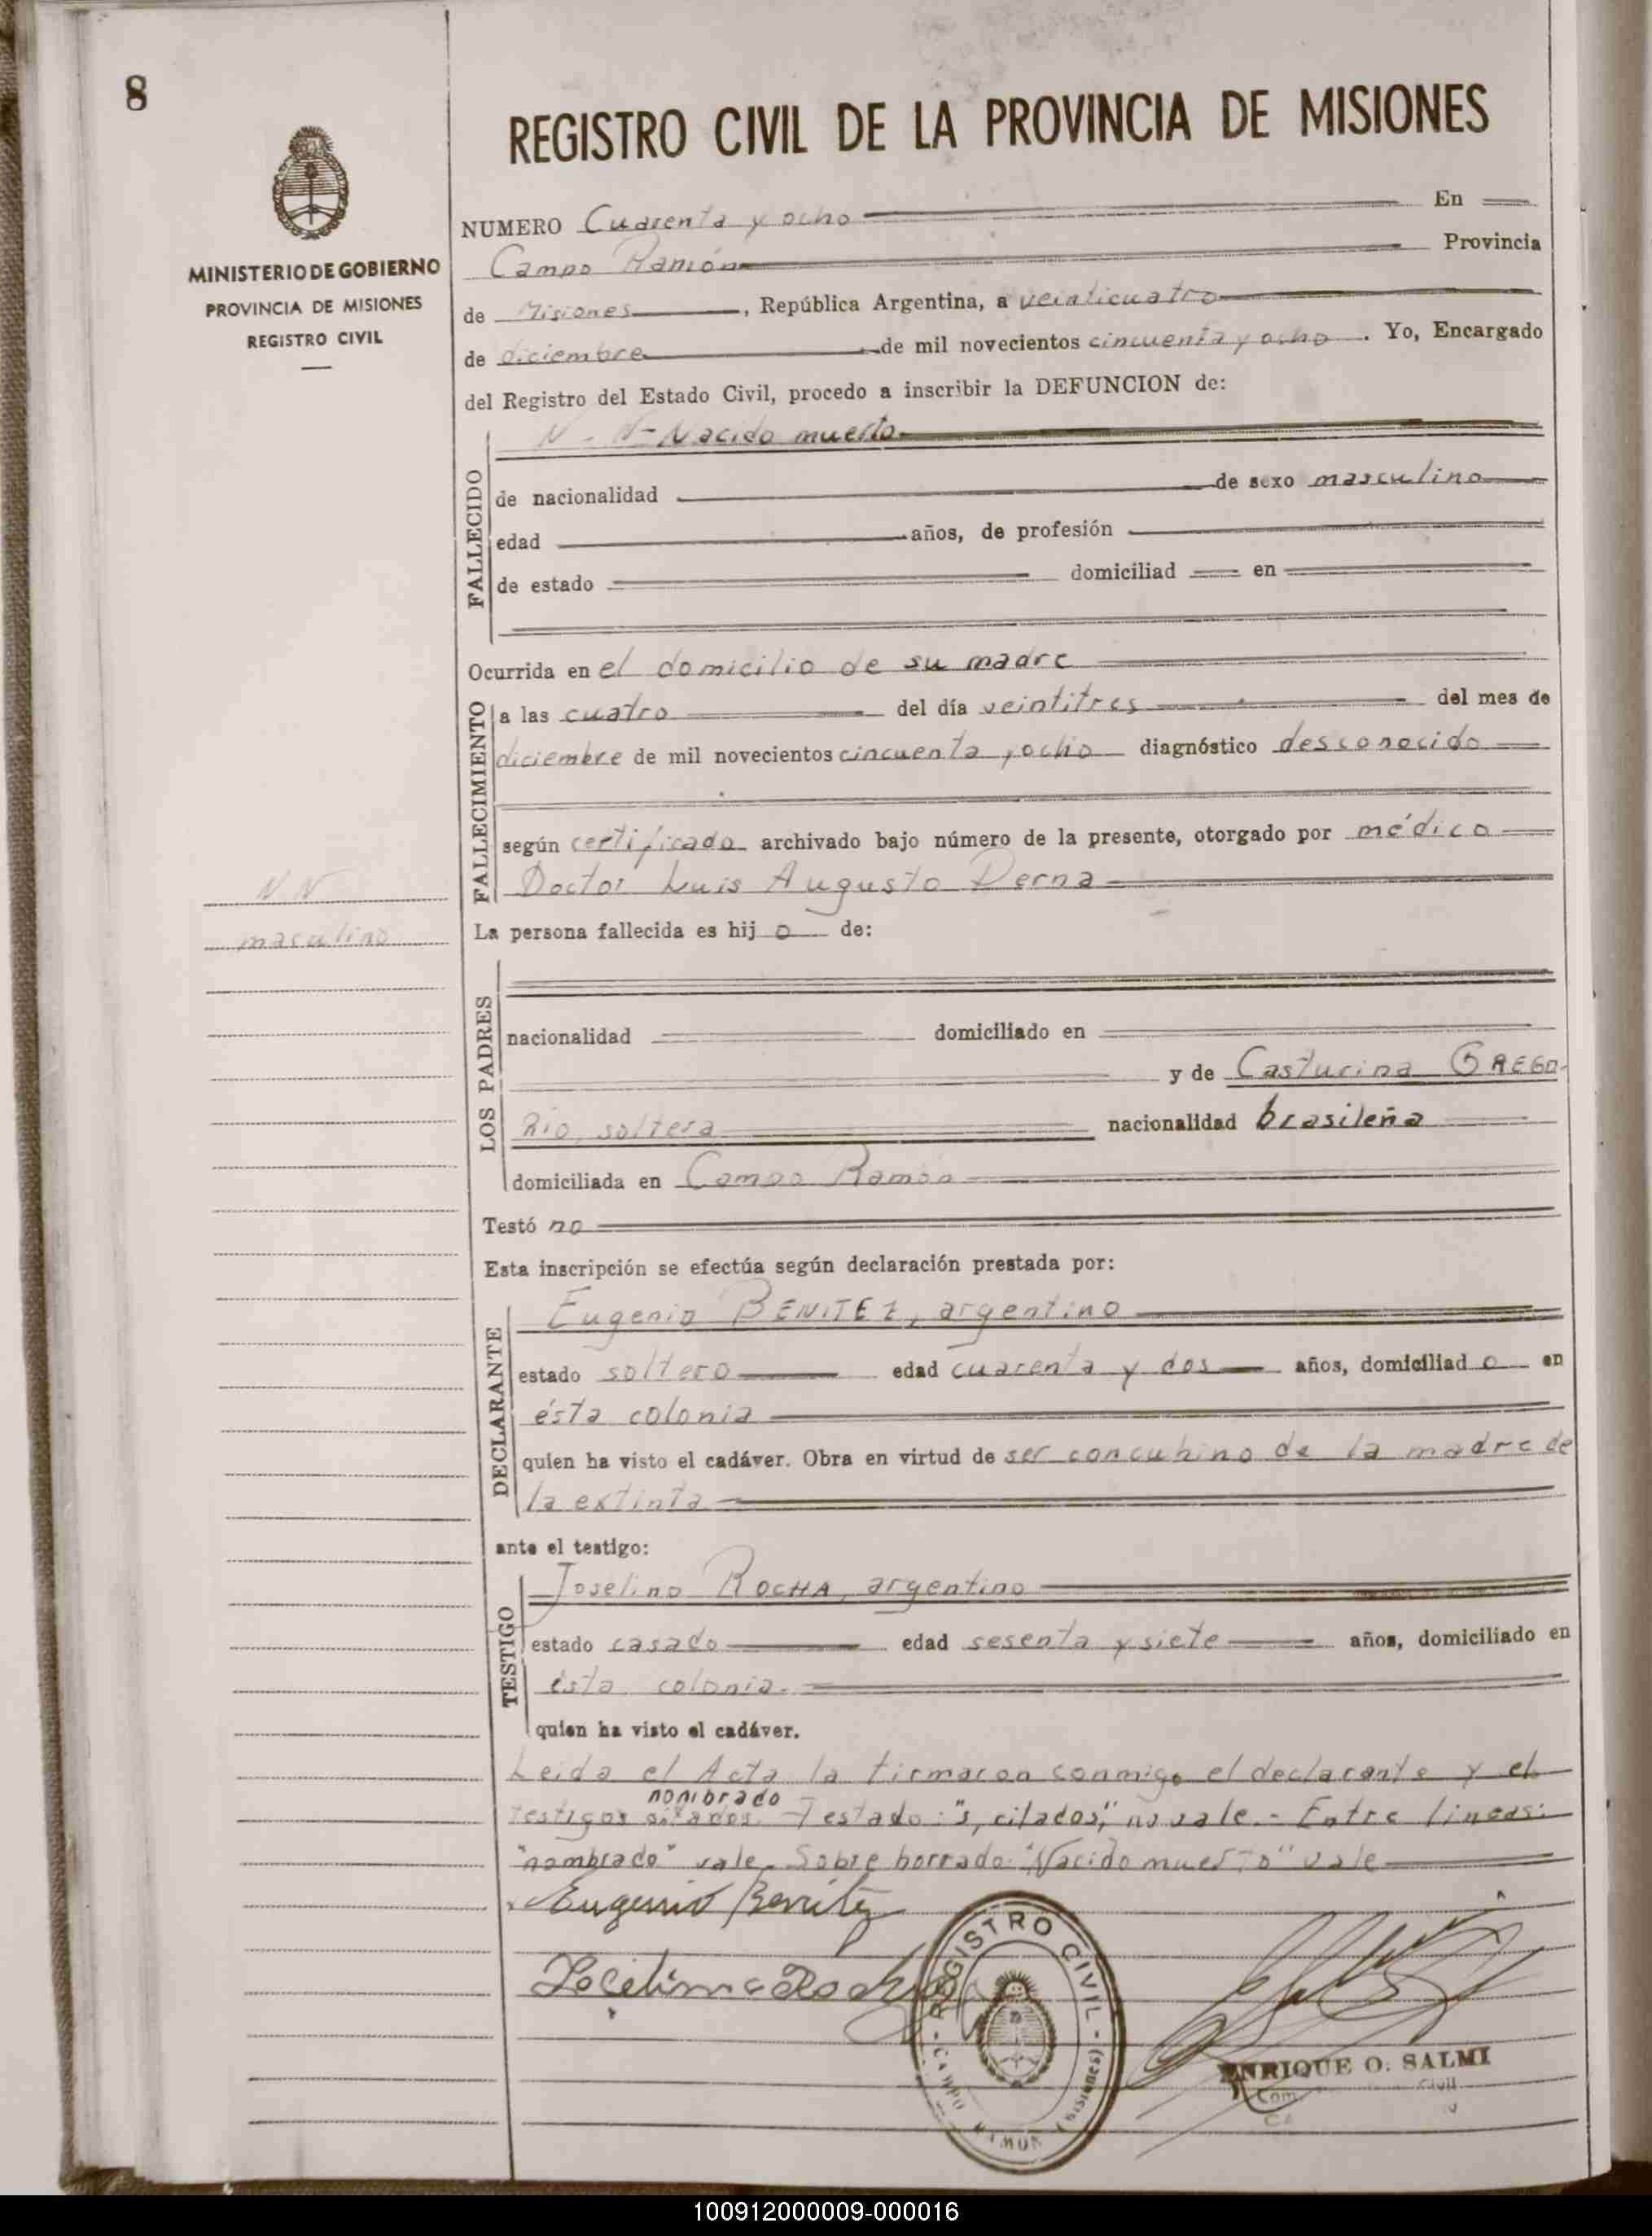 8
REGISTRO CIVIL DE LA PROVINCIA DE MISIONES
MINISTERIO DE GOBIERNO
PROVINCIA DE MISIONES
REGISTRO CIVIL
NUMERO Cuarenta y ocho En
Campo Ramón Provincia
de Misiones, República Argentina, a veinticuatro
de diciembre de mil novecientos cincuenta y ocho. Yo, Encargado
del Registro del Estado Civil, procedo a inscribir la DEFUNCION de:
N - N - Nacido muerto
FALLECIDO
de nacionalidad de sexo masculino
edad años, de profesión
de estado domiciliad en
Ocurrida en el domicilio de su madre
FALLECIMIENTO
a las cuatro del día veintitres del mes de
diciembre de mil novecientos cincuenta y ocho diagnóstico desconocido
según certificado archivado bajo número de la presente, otorgado por médico
Doctor Luis Augusto Derna
N N
masculino
La persona fallecida es hij o de:
LOS PADRES
nacionalidad domiciliado en
y de Casturina GREGO-
Rio, soltera nacionalidad brasileña
domiciliada en Campo Ramón
Testó no
Esta inscripción se efectúa según declaración prestada por:
DECLARANTE
Eugenio BENITEZ, argentino
estado soltero edad cuarenta y dos años, domiciliad o en
ésta colonia
quien ha visto el cadáver. Obra en virtud de ser concubino de la madre de
la extinta
ante el testigo:
TESTIGO
Joselino ROCHA, argentino
estado casado edad sesenta y siete años, domiciliado en
ésta colonia.
quien ha visto el cadáver.
Leida el Acta la firmaron conmigo el declarante y el
nombrado
testigos citados. Testado: "s, citados", no vale.- Entre lineas:
"nombrado" vale. Sobre borrado: "Nacido muerto" vale
Eugenio Benitez
REGISTRO CIVIL
CAMPO RAMON (Misiones)
ENRIQUE O. SALMI
100912000009-000016